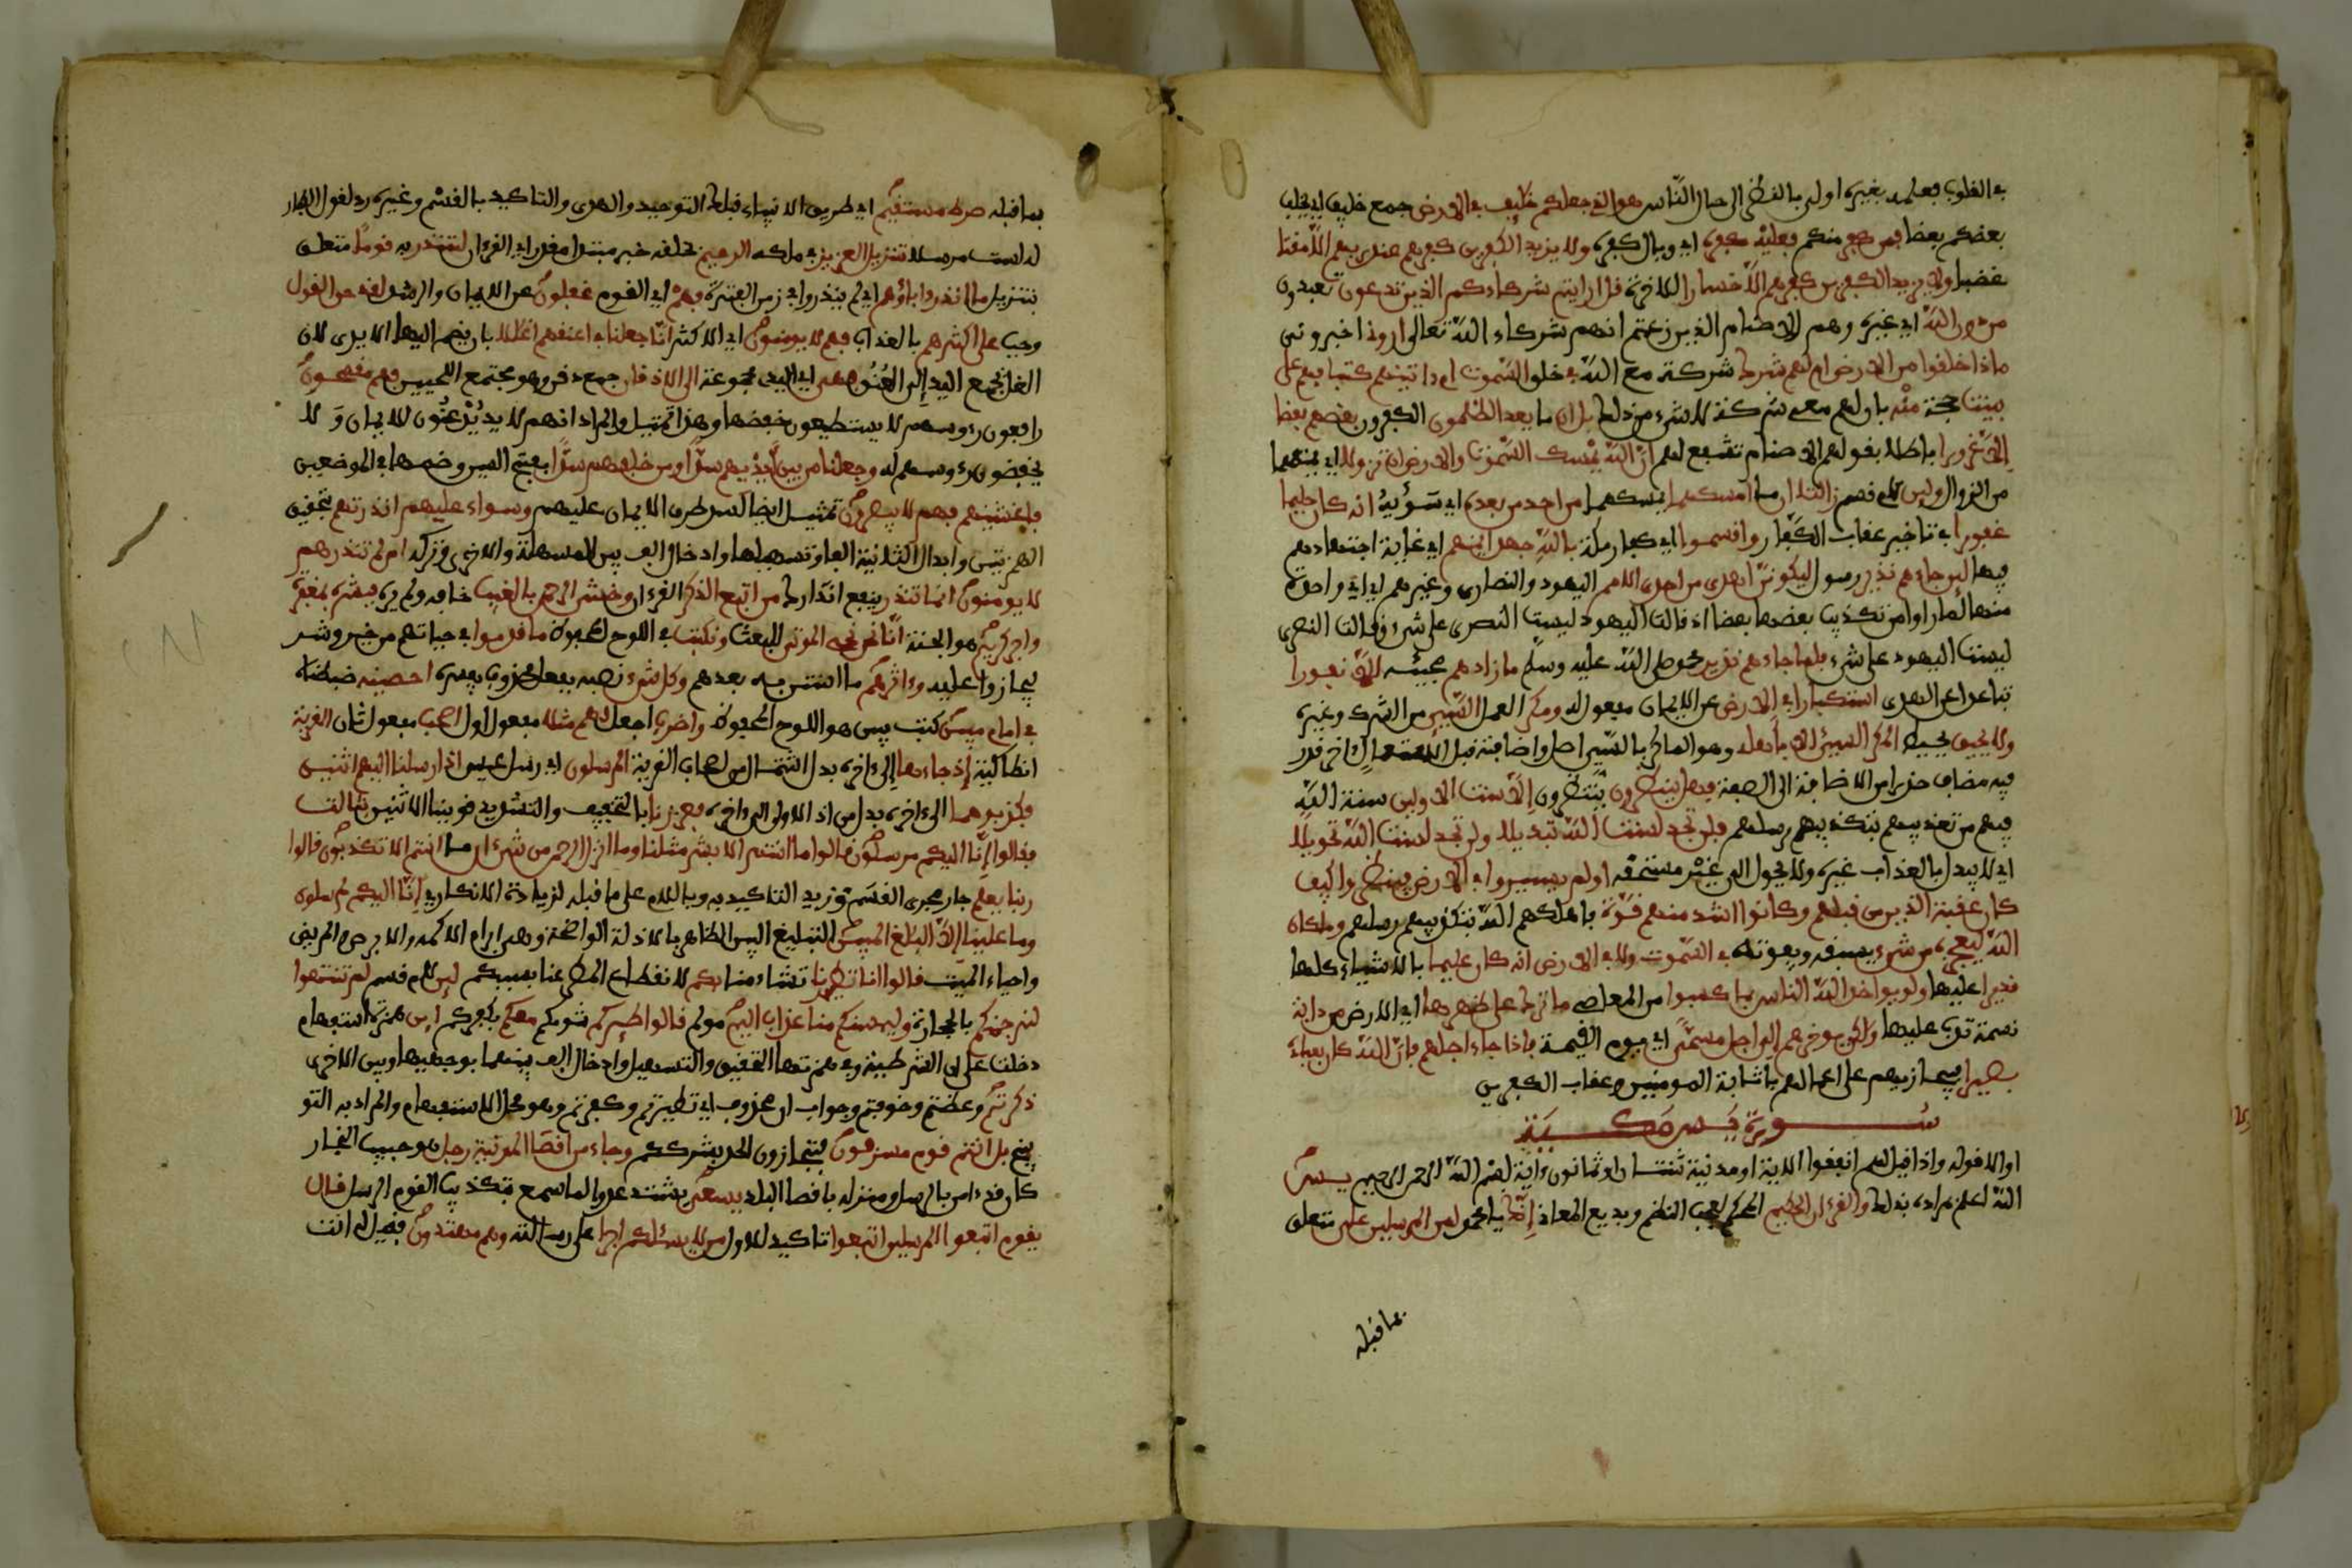 في القلوب فعلمه بغيره اولى بالنظر الى حال الناس هو الذي جعلكم خلئف في الارض جمع خليفة اي يخلف
بعضكم بعضا فمن كفر منكم فعليه كفره اي وبال كفره ولا يزيد الكفرين كفرهم عند ربهم الا مقتا
غضبا ولا يزيد الكفرين كفرهم الا خسارا للاخرة قل ارايتم شركاءكم الذين تدعون تعبدون
من دون الله اي غيره وهم الاصنام الذين زعمتم انهم شركاء الله تعالى اروني اخبروني
ماذا خلقوا من الارض ام لهم شرك شركة مع الله في خلق السموت ام ءاتينهم كتبا فهم على
بينت حجة منه بان لهم معي شركة لا شيء من ذلك بل ان ما يعد الظلمون الكفرون بعضهم بعضا
الا غرورا باطلا بقولهم الاصنام تشفع لهم ان الله يمسك السموت والارض ان تزولا اي يمنعهما
من الزوال ولين لام قسم زالتا ان ما امسكهما يمسكهما من احد من بعده اي سوىه انه كان حليما
غفورا في تاخير عقاب الكفار واقسموا اي كفار مكة بالله جهد ايمنهم اي غاية اجتهادهم
فيها لين جاءهم نذير رسول ليكونن اهدى من احدى الامم اليهود والنصارى وغيرهم اي اي واحدة
منها لما راوا من تكذيب بعضها بعضا اذ قالت اليهود ليست النصرى على شيء وقالت النصرى
ليست اليهود على شيء فلما جاءهم نذير محمد صلى الله عليه وسلم ما زادهم مجيئه الا نفورا
تباعدا عن الهدى استكبارا في الارض عن الايمان مفعول له ومكر العمل السيئ من الشرك وغيره
ولا يحيق يحيط المكر السيئ الا باهله وهو الماكر بالسيئ اصل واضافته قبل استعمال اخر قدر
فيه مضاف حذرا من الاضافة الى الصفة فهل ينظرون ينتظرون الا سنت الاولين سنة الله
فيهم من تعذيبهم بتكذيبهم رسلهم فلن تجد لسنت الله تبديلا ولن تجد لسنت الله تحويلا
اي لا يبدل بالعذاب غيره ولا يحول الى غير مستحقه اولم يسيروا في الارض فينظروا كيف
كان عقبة الذين من قبلهم وكانوا اشد منهم قوة فاهلكهم الله بتكذيبهم رسلهم وما كان
الله ليعجزه من شيء يسبقه ويفوته في السموت ولا في الارض انه كان عليما بالاشياء كلها
قديرا عليها ولو يواخذ الله الناس بما كسبوا من المعاصي ما ترك على ظهرها اي الارض من دابة
نسمة تدب عليها ولكن يوخرهم الى اجل مسمى اي يوم القيمة فاذا جاء اجلهم فان الله كان بعباده
بصيرا فيجازيهم على اعمالهم باثابة المومنين وعقاب الكفرين
سورة يس مكية
او الا قوله واذا قيل لهم انفقوا الاية او مدنية ثنتان وثمانون ءاية بسم الله الرحمن الرحيم يس
الله اعلم بمراده بذلك والقرءان الحكيم المحكم بعجيب النظم وبديع المعاني انك يا محمد لمن المرسلين على متعلق
بما قبله
بما قبله صرط مستقيم اي طريق الانبياء قبلك التوحيد والهدى والتاكيد بالقسم وغيره رد لقول الكفار
له لست مرسلا تنزيل العزيز في ملكه الرحيم بخلقه خبر مبتدا مقدر اي القرءان لتنذر به قوما متعلق
بتنزيل ما انذر ءاباؤهم اي لم ينذروا في زمن الفترة فهم اي القوم غفلون عن الايمان والرشد لقد حق القول
وجب على اكثرهم بالعذاب فهم لا يومنون اي الاكثر انا جعلنا في اعنقهم اغللا بان تضم اليها الايدي لان
الغل يجمع اليد الى العنق فهي اي الايدي مجموعة الى الاذقان جمع ذقن وهو مجتمع اللحيين فهم مقمحون
رافعون رءوسهم لا يستطيعون خفضها وهذا تمثيل والمراد انهم لا يذعنون للايمان ولا
يخفضون رءوسهم له وجعلنا من بين ايديهم سدا ومن خلفهم سدا بفتح السين وضمها في الموضعين
فاغشينهم فهم لا يبصرون تمثيل ايضا لسد طرق الايمان عليهم وسواء عليهم انذرتهم بتحقيق
الهمزتين وابدال الثانية الفا وتسهيلها وادخال الف بين المسهلة والاخرى وتركه ام لم تنذرهم
لا يومنون انما تنذر ينفع انذارك من اتبع الذكر القرءان وخشي الرحمن بالغيب خافه ولم يره فبشره بمغفرة
واجر كريم هو الجنة انا نحن نحي الموتى للبعث ونكتب في اللوح المحفوظ ما قدموا في حياتهم من خير وشر
ليجازوا عليه وءاثرهم ما استن به بعدهم وكل شيء نصبه بفعل محذوف يفسره احصينه ضبطناه
في امام مبين كتب بين هو اللوح المحفوظ واضرب اجعل لهم مثلا مفعول اول اصحب مفعول ثان القرية
انطاكية اذ جاءها الى ءاخره بدل اشتمال من اصحاب القرية المرسلون اي رسل عيسى اذ ارسلنا اليهم اثنين
فكذبوهما الى ءاخره بدل من اذ الاولى الى ءاخره فعززنا بالتخفيف والتشديد قوينا الاثنين بثالث
فقالوا انا اليكم مرسلون قالوا ما انتم الا بشر مثلنا وما انزل الرحمن من شيء ان ما انتم الا تكذبون قالوا
ربنا يعلم جار مجرى القسم وزيد التاكيد به وباللام على ما قبله لزيادة الانكار في انا اليكم لمرسلون
وما علينا الا البلغ المبين التبليغ البين الظاهر بالادلة الواضحة وهي ابراء الاكمه والابرص والمريض
واحياء الميت قالوا انا تطيرنا تشاءمنا بكم لانقطاع المطر عنا بسببكم لين لام قسم لم تنتهوا
لنرجمنكم بالحجارة وليمسنكم منا عذاب اليم مولم قالوا طيركم شومكم معكم بكفركم اين همزة استفهام
دخلت على ان الشرطية وفي همزتها التحقيق والتسهيل وادخال الف بينها بوجهيها وبين الاخرى
ذكرتم وعظتم وخوفتم وجواب ان محذوف اي تطيرتم وكفرتم وهو محل الاستفهام والمراد به التو
بيخ بل انتم قوم مسرفون متجاوزون الحد بشرككم وجاء من اقصا المدينة رجل هو حبيب النجار
كان قد ءامن بالرسل ومنزله باقصا البلد يسعى يشتد عدوا لما سمع بتكذيب القوم الرسل قال
يقوم اتبعوا المرسلين اتبعوا تاكيد للاول من لا يسئلكم اجرا على رسالته وهم مهتدون فقيل له انت